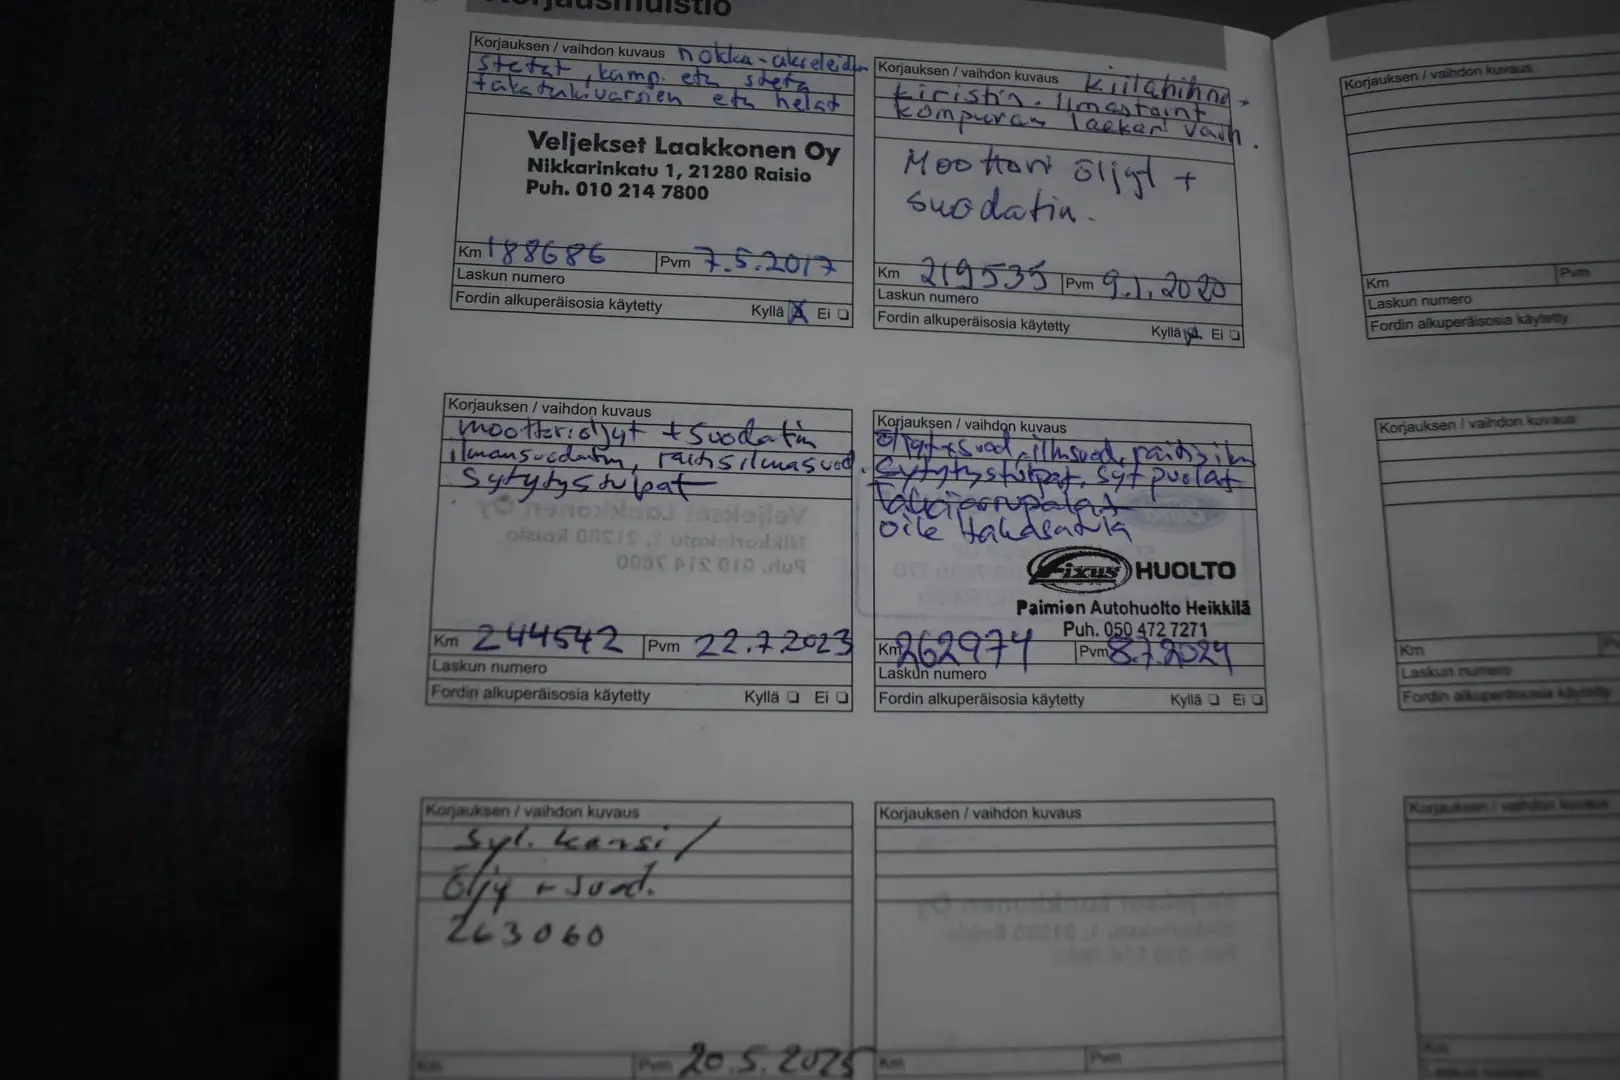 Korjausmuistio
Korjauksen / vaihdon kuvaus nokka-akseleiden
stefat, kamp. etu stefa
takatukivarsien etu helat
Veljekset Laakkonen Oy
Nikkarinkatu 1, 21280 Raisio
Puh. 010 214 7800
Km 188686 Pvm 7.5.2017
Laskun numero
Fordin alkuperäisosia käytetty Kyllä X Ei
Korjauksen / vaihdon kuvaus kiilahihna +
kiristin. Ilmastoint
kompuran laaker vaih.
Moottori öljyt +
suodatin.
Km 219535 Pvm 9.1.2020
Laskun numero
Fordin alkuperäisosia käytetty Kyllä Ei
Korjauksen / vaihdon kuvaus
moottoriöljyt + suodatin
ilmansuodatin, raitisilmasuod.
Sytytystulpat
Km 244542 Pvm 22.7.2023
Laskun numero
Fordin alkuperäisosia käytetty Kyllä Ei
Korjauksen / vaihdon kuvaus
öljyt+suod, ilmsuod, raitisilm
Sytytystulpat, sytpuolat
Takajarrupalat
oike takasatula
Fixus HUOLTO
Paimion Autohuolto Heikkilä
Puh. 050 472 7271
Km 262974 Pvm 8.7.2024
Laskun numero
Fordin alkuperäisosia käytetty Kyllä Ei
Korjauksen / vaihdon kuvaus
Syl. kansi /
Öljy + suod.
263060
Km Pvm 20.5.2025
Korjauksen / vaihdon kuvaus
Km Pvm
Korjauksen / vaihdon kuvaus
Km Pvm
Laskun numero
Fordin alkuperäisosia käytetty
Korjauksen / vaihdon kuvaus
Km
Laskun numero
Fordin alkuperäisosia käytetty
Korjauksen / vaihdon kuvaus
Km
Laskun numero